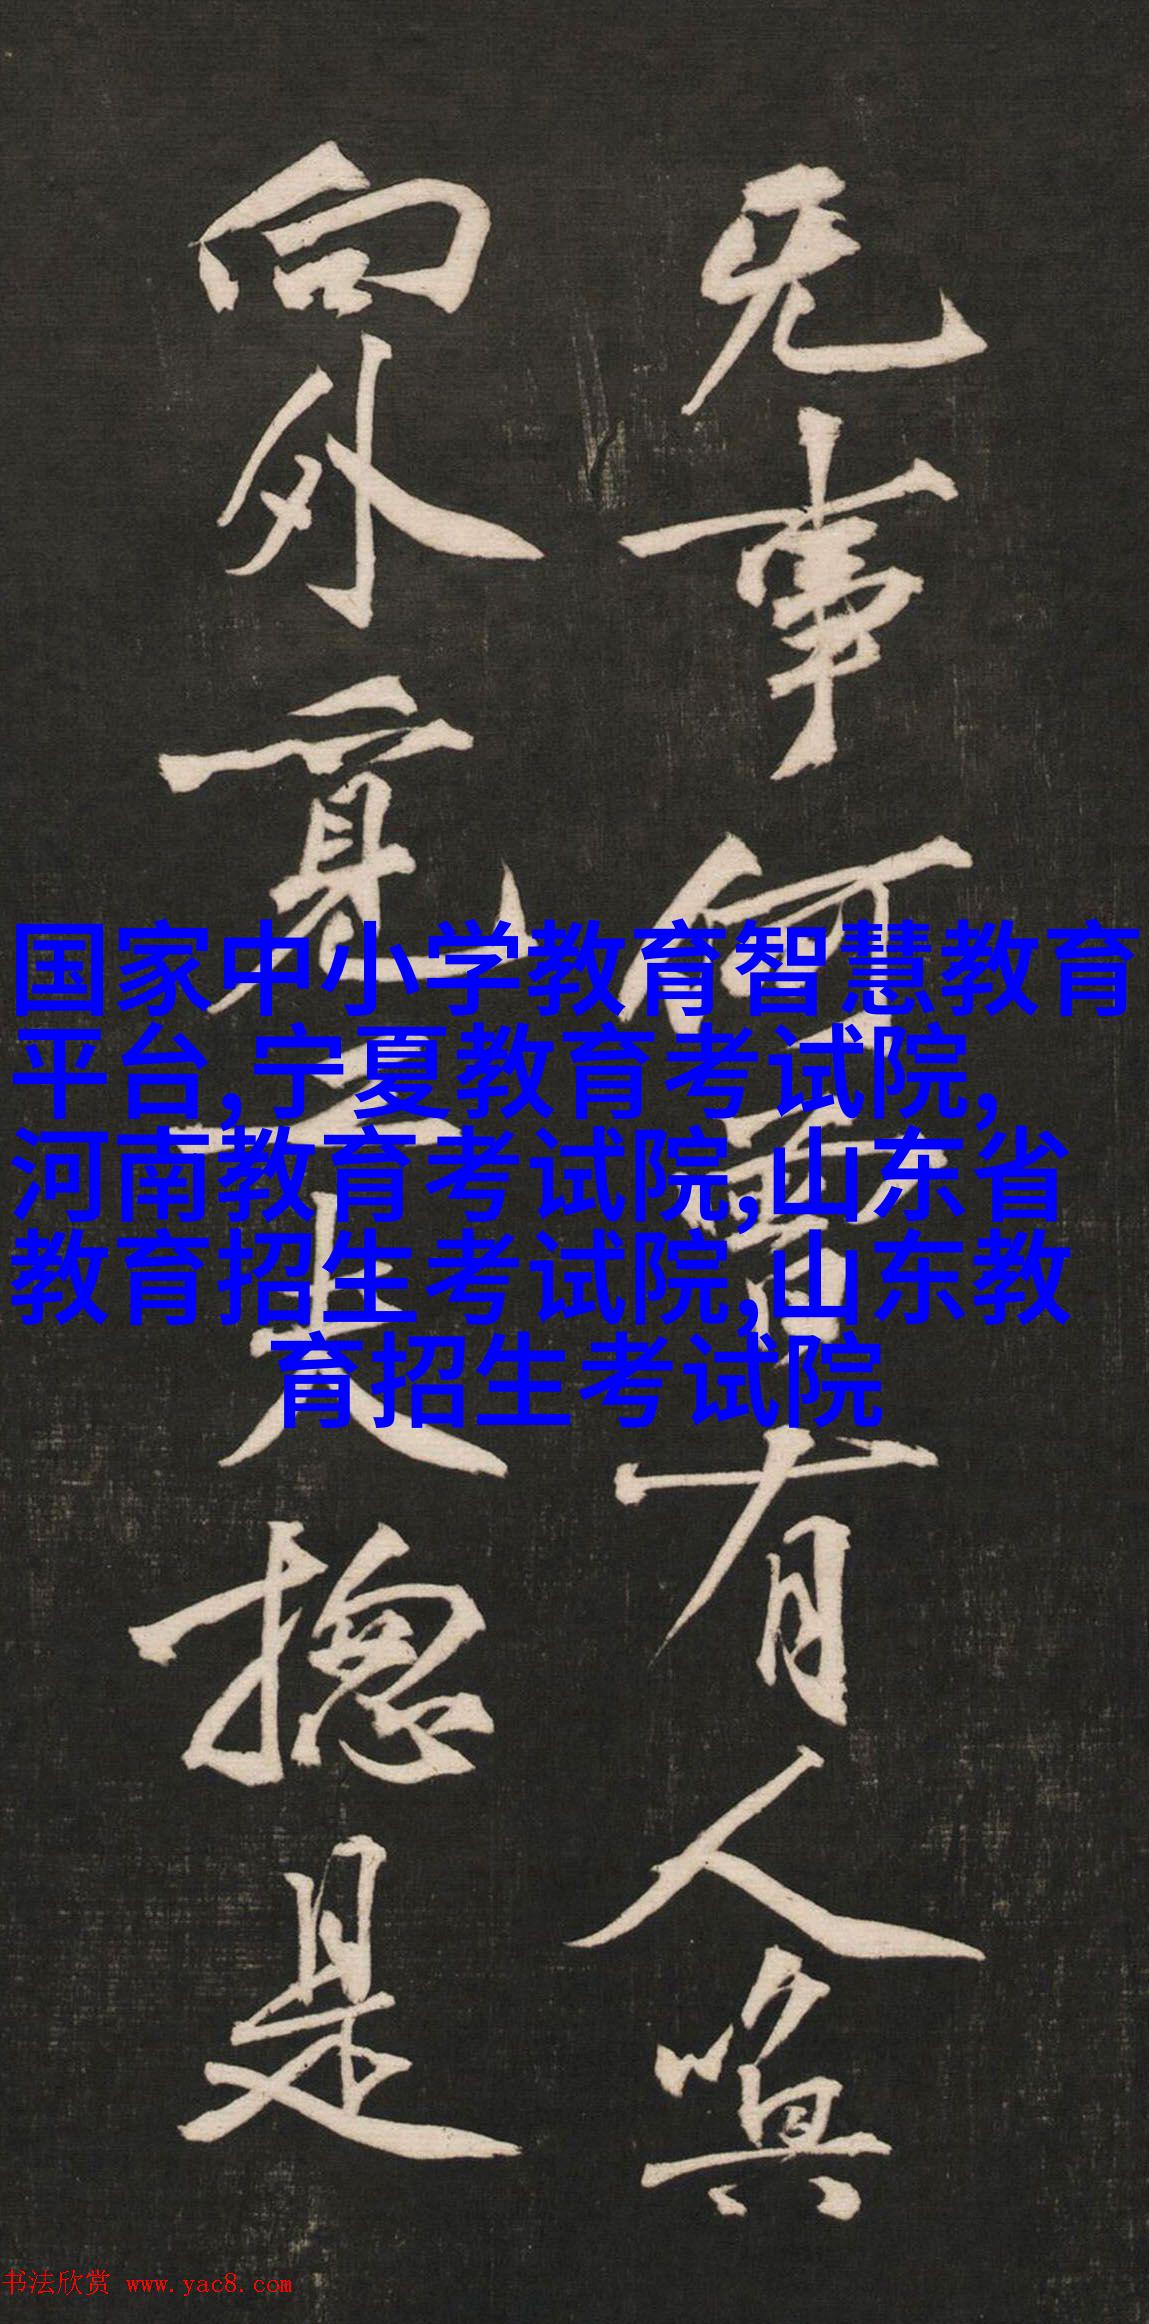 旡事何有人喚
向外覓工夫揔是
国家中小学教育智慧教育
平台,宁夏教育考试院,
河南教育考试院,山东省
教育招生考试院,山东教
育招生考试院
书法欣赏 www.yac8.com